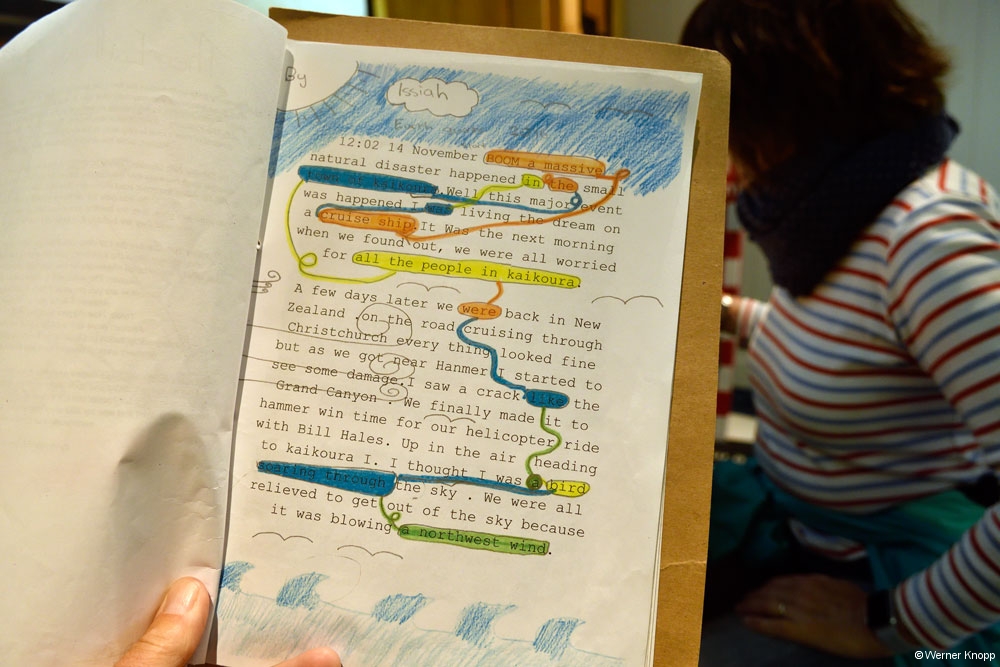 By
Issiah
12:02 14 November BOOM a massive
natural disaster happened in the small
town of kaikoura. Well this major event
was happened I was living the dream on
a cruise ship. It Was the next morning
when we found out, we were all worried
for all the people in kaikoura.
A few days later we were back in New
Zealand on the road cruising through
Christchurch every thing looked fine
but as we got near Hanmer I started to
see some damage. I saw a crack like the
Grand Canyon . We finally made it to
hammer win time for our helicopter ride
with Bill Hales. Up in the air heading
to kaikoura I. I thought I was a bird
soaring through the sky . We were all
relieved to get out of the sky because
it was blowing a northwest wind.
©Werner Knopp